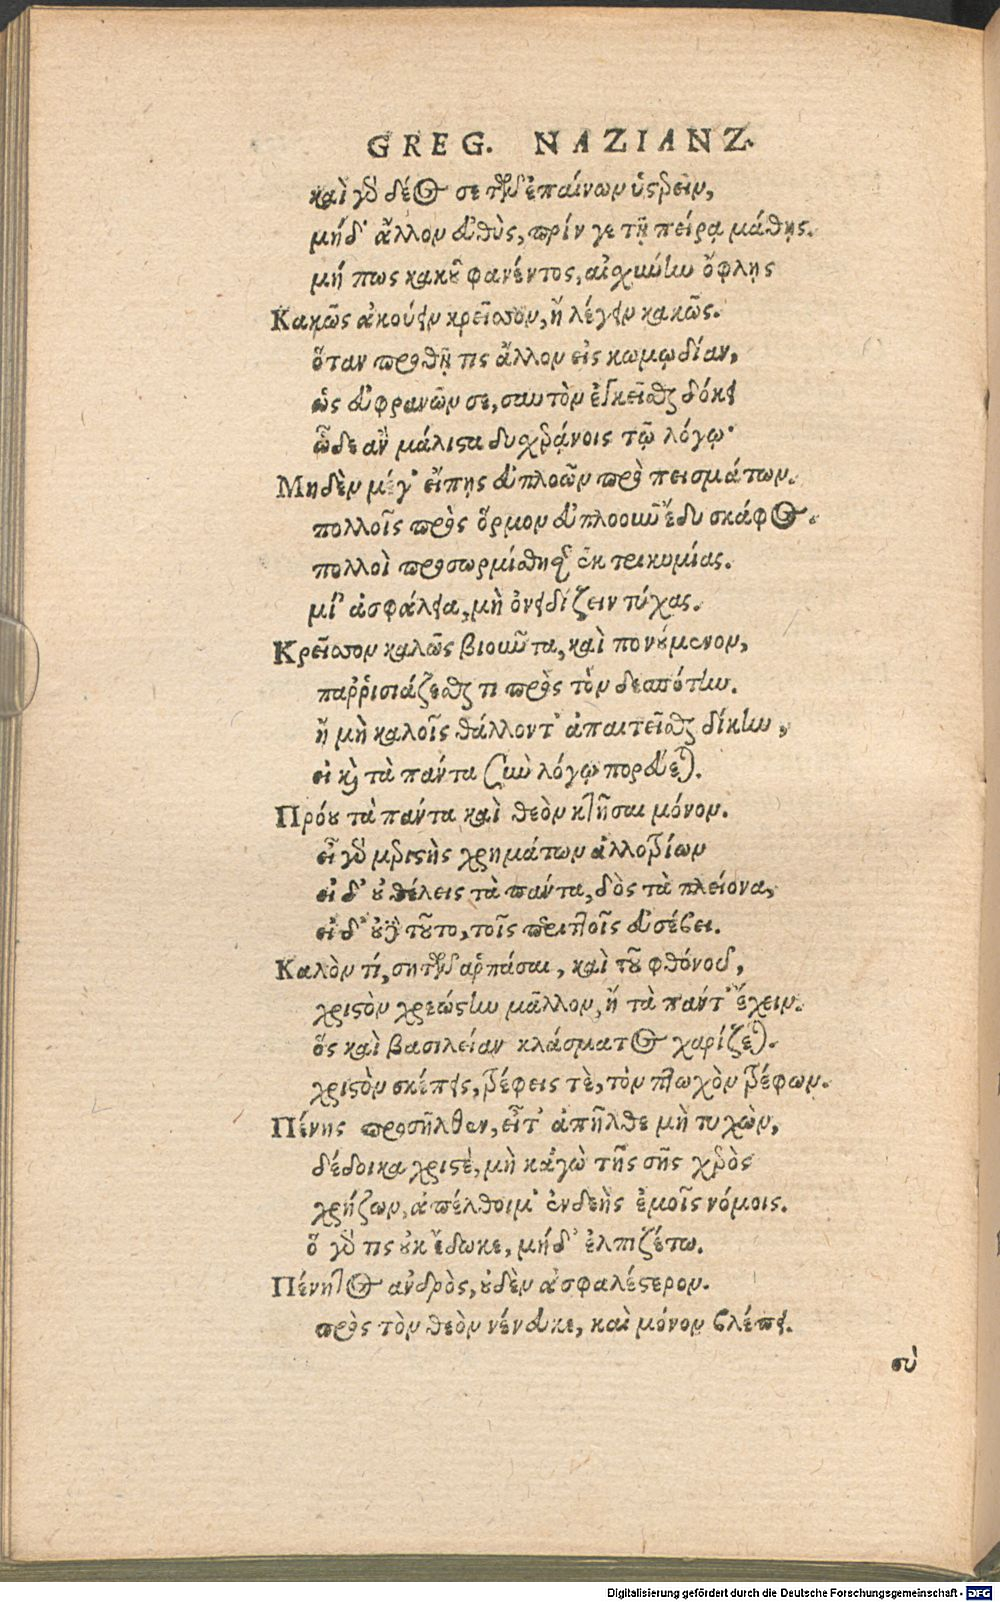 GREG. NAZIANZ.
καὶ γὰρ δέος σε τῶν ἐπαίνων ὑστερεῖν,
μήδ' ἄλλον εὐθὺς, πρίν γε τῇ πείρᾳ μάθῃς.
μή πως κακοῦ φανέντος, αἰσχύνην ὄφλῃς
Κακῶς ἀκούειν κρεῖσσον, ἢ λέγειν κακῶς.
ὅταν προθῇ τις ἄλλον εἰς κωμῳδίαν,
ὡς εὐφρανῶν σε, σαυτὸν ἐγκεῖσθαι δόκει
ὧδε ἂν μάλιστα δυσχεράνοις τῷ λόγῳ·
Μηδὲν μέγ' εἴπῃς εὐπλοῶν πρὸ πεισμάτων.
πολλοῖς πρὸς ὅρμον εὐπλοοῦν ἔδυ σκάφος.
πολλοὶ προσωρμίσθησαν ἐκ τρικυμίας.
μί' ἀσφάλεια, μὴ ὀνειδίζειν τύχας.
Κρεῖσσον καλῶς βιοῦντα, καὶ πονούμενον,
παῤῥισιάζεσθαι τι πρὸς τὸν δεσπότην.
ἢ μὴ καλοῖς θάλλοντ' ἀπαιτεῖσθαι δίκην,
εἰ καὶ τὰ πάντα σὺν λόγῳ πορεύεται.
Πρόου τὰ πάντα καὶ θεὸν κτῆσαι μόνον.
εἶ γὰρ μεριστὴς χρημάτων ἀλλοτρίων
εἰ δ' οὐ θέλεις τὰ πάντα, δὸς τὰ πλείονα,
εἰ δ' οὐδὲ τοῦτο, τοῖς περιττοῖς εὐσέβει.
Καλὸν τί, σητῶν ἁρπάσαι, καὶ τοῦ φθόνου,
χριστὸν χρεώστην μᾶλλον, ἢ τὰ πάντ' ἔχειν.
ὃς καὶ βασιλείαν κλάσματος χαρίζεται.
χριστὸν σκέπεις, τρέφεις τὲ, τὸν πτωχὸν τρέφων.
Πένης προσῆλθεν, εἶτ' ἀπῆλθε μὴ τυχὼν,
δέδοικα χριστὲ, μὴ κἀγὼ τῆς σῆς χερὸς
χρῄζων, ἀπέλθοιμ' ἐνδεὴς ἐμοῖς νόμοις.
ὃ γάρ τις οὐκ ἔδωκε, μήδ' ἐλπιζέτω.
Πένητος ἀνδρὸς, οὐδὲν ἀσφαλέστερον.
πρὸς τὸν θεὸν νένευκε, καὶ μόνον βλέπει.
σὺ
Digitalisierung gefördert durch die Deutsche Forschungsgemeinschaft - DFG